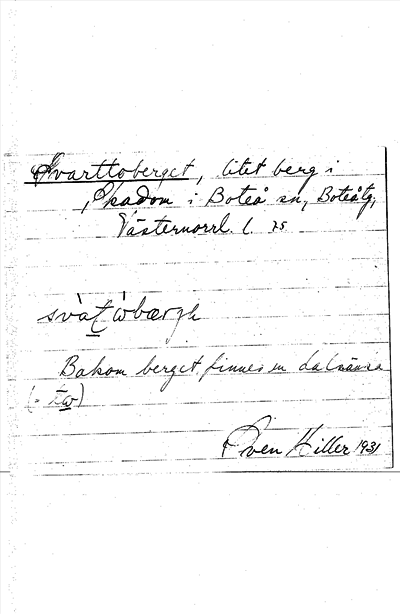 Svarttoberget, litet berg i
Skadom i Boteå sn, Boteå tg,
Västernorrl. l.
Bakom berget finnes en dalsänka
Sven Hiller 1931